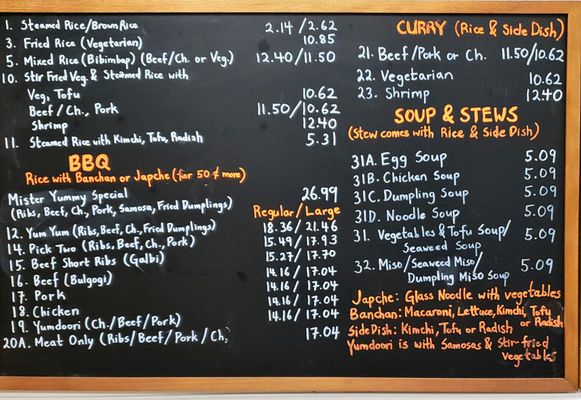 1. Steamed Rice/Brown Rice 2.14 / 2.62
3. Fried Rice (Vegetarian) 10.85
5. Mixed Rice (Bibimbap) (Beef/Ch. or Veg.) 12.40/11.50
10. Stir Fried Veg. & Steamed Rice with
Veg, Tofu 10.62
Beef/Ch., Pork 11.50/10.62
Shrimp 12.40
11. Steamed Rice with Kimchi, Tofu, Radish 5.31
BBQ
Rice with Banchan or Japche (for 50¢ more)
Mister Yummy Special 26.99
(Ribs, Beef, Ch., Pork, Samosa, Fried Dumplings)
Regular/Large
12. Yum Yum (Ribs, Beef, Ch., Fried Dumplings) 18.36/21.46
14. Pick Two (Ribs, Beef, Ch., Pork) 15.49/17.93
15. Beef Short Ribs (Galbi) 15.27/17.70
16. Beef (Bulgogi) 14.16/17.04
17. Pork 14.16/17.04
18. Chicken 14.16/17.04
19. Yumdoori (Ch./Beef/Pork) 14.16/17.04
20A. Meat Only (Ribs/Beef/Pork/Ch. 17.04
CURRY (Rice & Side Dish)
21. Beef/Pork or Ch. 11.50/10.62
22. Vegetarian 10.62
23. Shrimp 12.40
SOUP & STEWS
(Stew comes with Rice & Side Dish)
31A. Egg Soup 5.09
31B. Chicken Soup 5.09
31C. Dumpling Soup 5.09
31D. Noodle Soup 5.09
31. Vegetables & Tofu Soup/ 5.09
Seaweed Soup
32. Miso/Seaweed Miso/ 5.09
Dumpling Miso Soup
Japche: Glass Noodle with vegetables
Banchan: Macaroni, Lettuce, Kimchi, Tofu or Radish
Side Dish: Kimchi, Tofu or Radish
Yumdoori is with Samosas & Stir-fried
vegetables